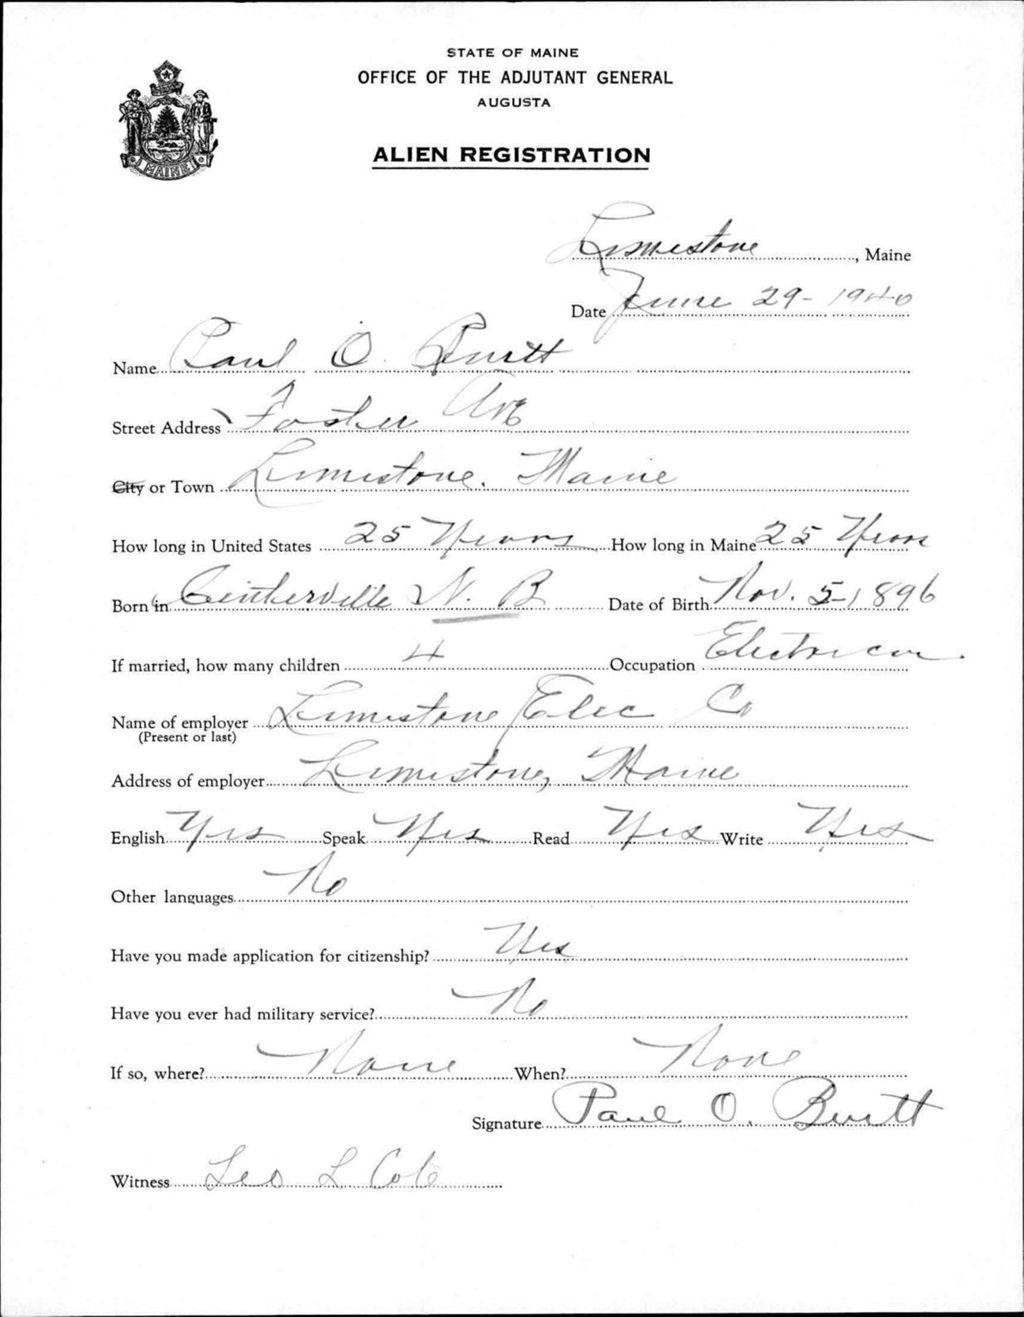 STATE OF MAINE
OFFICE OF THE ADJUTANT GENERAL
AUGUSTA
ALIEN REGISTRATION
MAINE
Limestone, Maine
Date June 29-1940
Name Paul O. Burtt
Street Address Foster Ave
City or Town Limestone. Maine
How long in United States 25 Years How long in Maine 25 Years
Born in Centerville N. B Date of Birth Nov. 5-1896
If married, how many children 4 Occupation Electrican.
Name of employer Limestone Elec Co
(Present or last)
Address of employer Limestone, Maine
English Yes Speak Yes Read Yes Write Yes
Other languages No
Have you made application for citizenship? Yes
Have you ever had military service? No
If so, where? None When? None
Signature Paul O. Burtt
Witness Leo L Cole